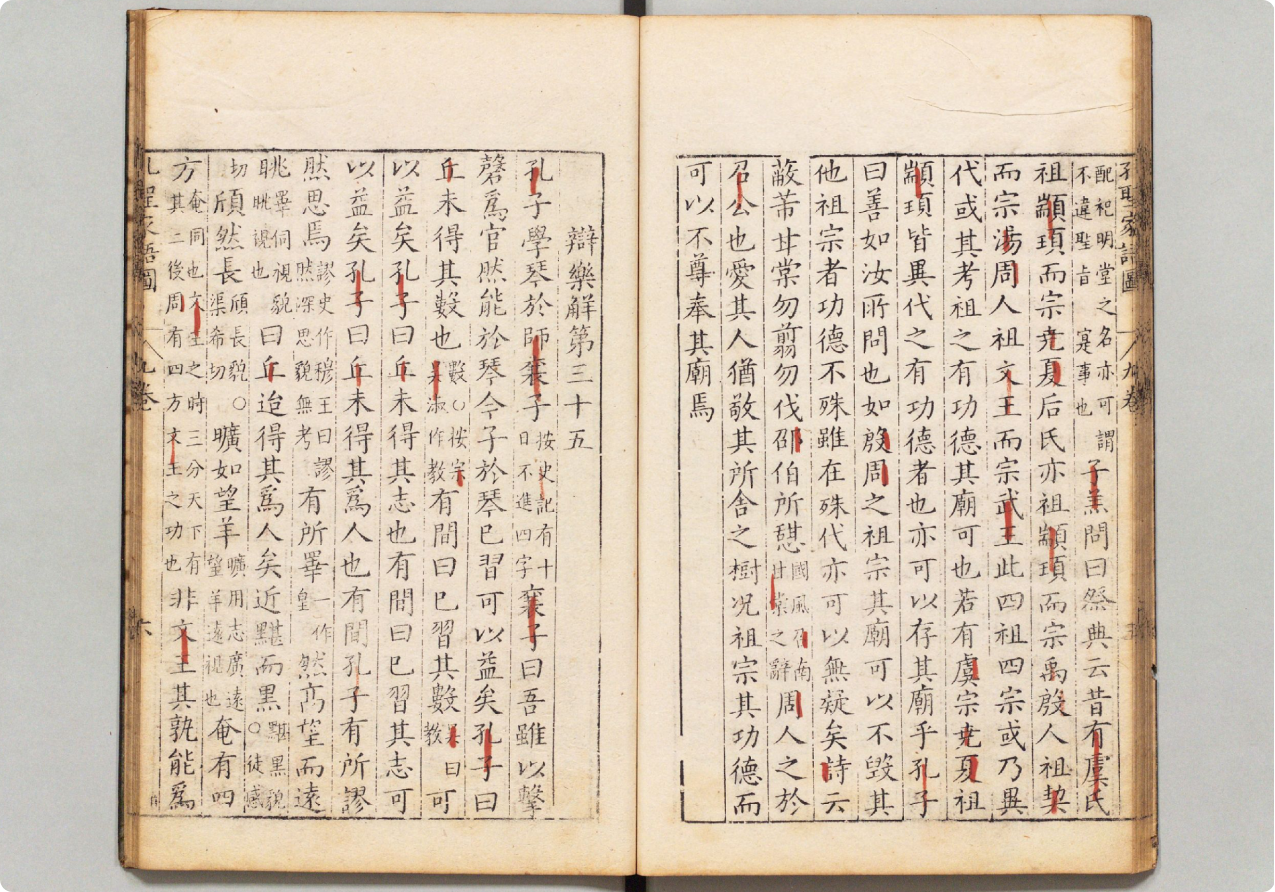 孔聖家語圖 九卷
配祀明堂之名亦可謂
不違聖旨 寔事也
子羔問曰祭典云昔有虞氏
祖顓頊而宗尭夏后氏亦祖顓頊而宗禹殷人祖契
而宗湯周人祖文王而宗武王此四祖四宗或乃異
代或其考祖之有功德其廟可也若有虞宗尭夏祖
顓頊皆異代之有功德者也亦可以存其廟乎孔子
曰善如汝所問也如殷周之祖宗其廟可以不毀其
他祖宗者功德不殊雖在殊代亦可以無疑矣詩云
蔽芾甘棠勿翦勿伐邵伯所憇國風召南甘棠之辭周人之於
召公也愛其人猶敬其所舍之樹况祖宗其功德而
可以不尊奉其廟焉
辯樂解第三十五
孔子學琴於師襄子按史記有十日不進四字襄子曰吾雖以擊
磬爲官然能於琴今子於琴已習可以益矣孔子曰
丘未得其數也數○按家吳淑作教有間曰已習其數吳教曰可
以益矣孔子曰丘未得其志也有間曰已習其志可
以益矣孔子曰丘未得其爲人也有間孔子有所謬
然思焉謬史作穆王曰謬然深思貌無考有所睪一作皇然高望而遠
眺睪伺視貌眺視也曰丘迨得其爲人矣近黮而黑黮黑貌○徒感
切頎然長頎長貌○渠希切曠如望羊曠用志廣遠望羊遠視也奄有四
方奄同也文王之時三分天下有其二後周有四方文王之功也非文王其孰能爲
孔聖家語圖 九卷 六